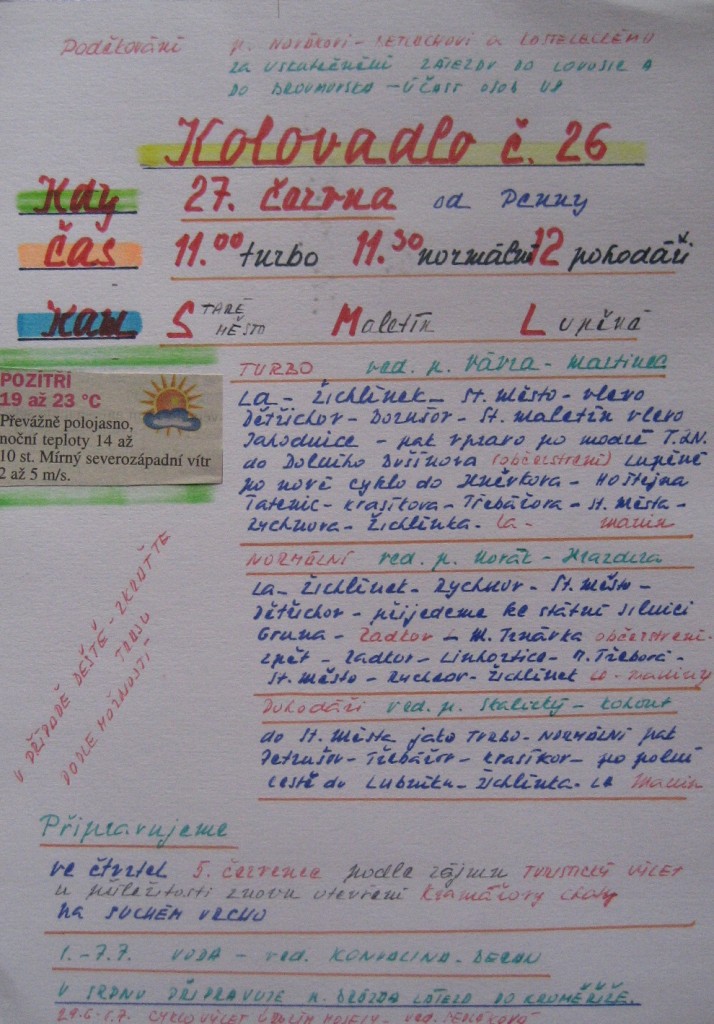 Poděkování p. Novákovi - a Kosteleckému
za uskutečnění zájezdu do Lovosic a
do Broumovska - účast osob
Kolovadlo č. 26
Kdy 27. června od Penny
Čas 11.00 turbo 11.30 normální 12 pohodáři
Kam Staré Město Maletín Lupěné
POZÍTŘÍ
19 až 23 °C
Převážně polojasno,
noční teploty 14 až
10 st. Mírný severozápadní vítr
2 až 5 m/s.
TURBO ved. p. Vávra - Martinec
LA - Žichlínek - St. Město - vlevo
Dětřichov - Borušov - St. Maletín vlevo
Jahodnice - pak vpravo po modré T.ZN.
do Dolního Bušínova (občerstvení) Lupěné
po nové cyklo do Hněvkova - Hoštejna
Tatenic - Krasíkova - Třebářova - St. Města -
Rychnova - Žichlínka - LA -
NORMÁLNÍ ved. p. Horák - Hrazdíra
LA - Žichlínek - Rychnov - St. Město -
Dětřichov - přijedeme ke státní silnici
Gruna - Radkov - M. Trnávka občerstvení -
zpět - Radkov - Linhartice - M. Třebová -
St. Město - Rychnov - Žichlínek LA -
Pohodáři ved. p. Skalický - Kohout
do St. Města jako TURBO - NORMÁLNÍ pak
Petrušov - Třebářov - Krasíkov - po polní
cestě do Lubníku - Žichlínka - LA
V PŘÍPADĚ DEŠTĚ - ZKRAŤTE
TRASU
PODLE MOŽNOSTÍ
Připravujeme
ve čtvrtek 5. července podle zájmu TURISTICKÝ VÝLET
u příležitosti znovu otevření Kramářovy chaty
NA SUCHÉM VRCHU
1. - 7.7. VODA - ved. KONVALINA - BERAN
V SRPNU PŘIPRAVUJE p. DROZDA ZÁJEZD DO KROMĚŘÍŽE.
29.6 - 1.7. CYKLOVÝLET ÚDOLÍM - VED.